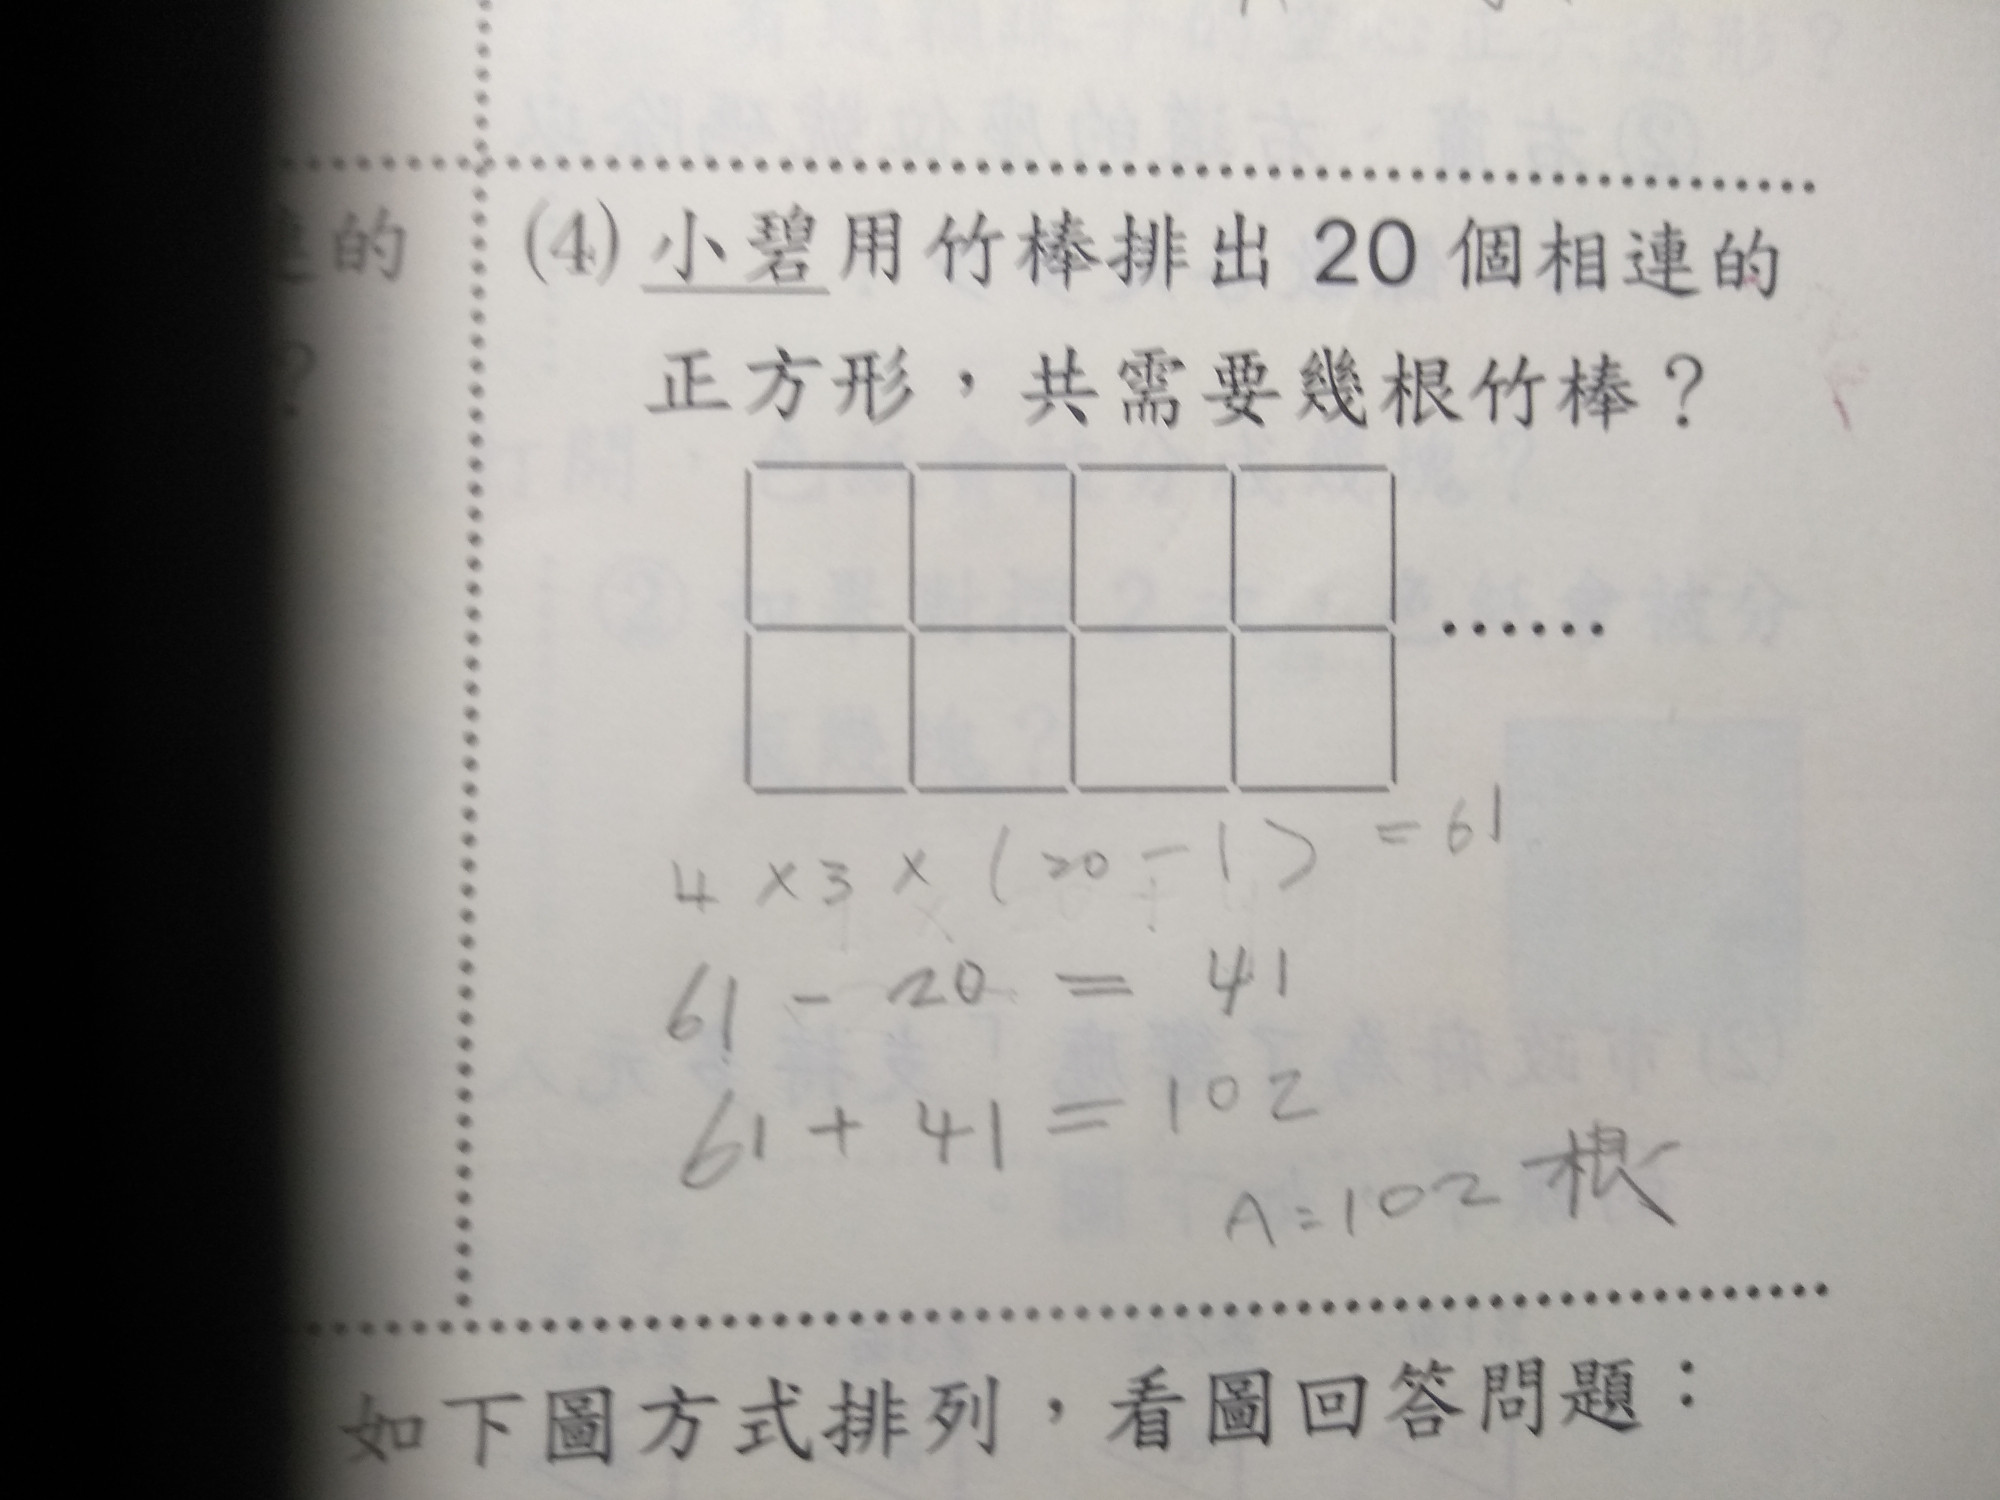 的
(4) 小碧用竹棒排出 20 個相連的
?
正方形，共需要幾根竹棒？
......
4 × 3 × (20 - 1) = 61
61 - 20 = 41
61 + 41 = 102
A = 102 根
如下圖方式排列，看圖回答問題：